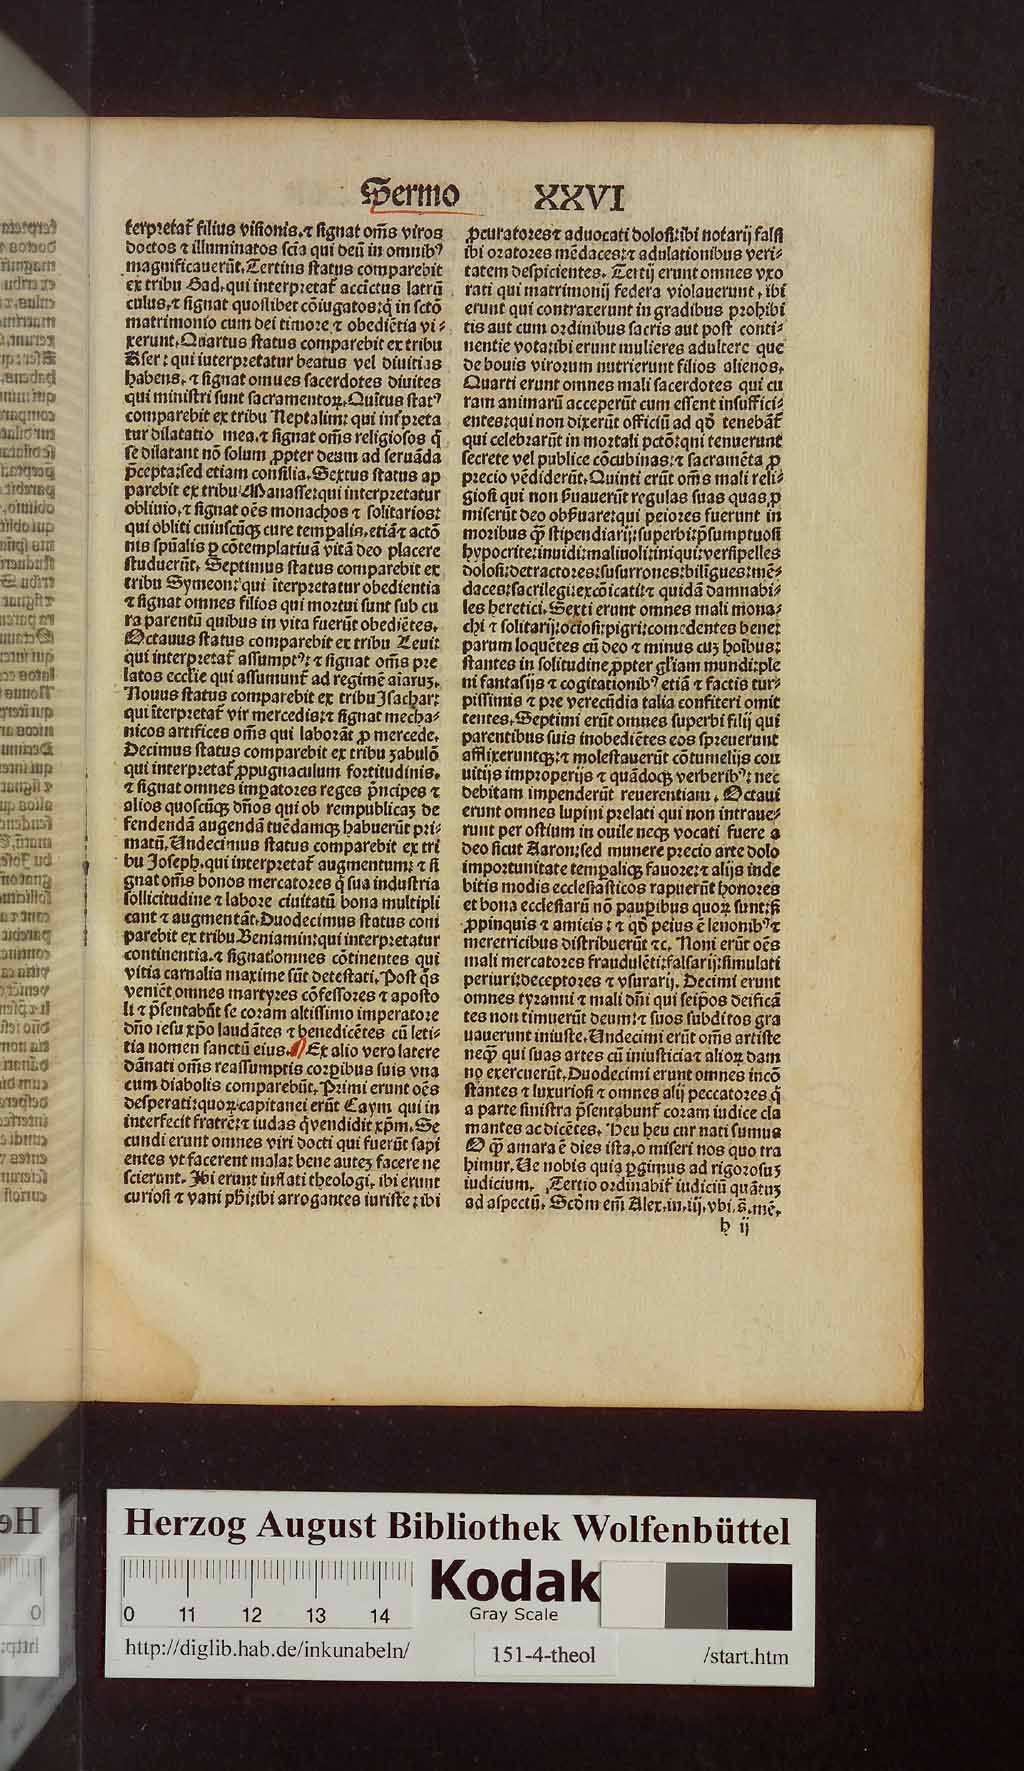 Sermo XXVI
terpretat᷑ filius visionis. ⁊ signat om̄s viros
doctos ⁊ illuminatos scīa qui deū in omnibꝰ
magnificauerūt. Tertius status comparebit
ex tribu Gad. qui interpretat᷑ accīctus latrū
culus. ⁊ signat quoslibet cōiugatos: q̄ in sctō
matrimonio cum dei timore ⁊ obediētia vi⸗
xerunt. Quartus status comparebit ex tribu
Aser: qui iuterpretatur beatus vel diuitias
habens. ⁊ signat omues sacerdotes diuites
qui ministri sunt sacramentoꝝ. Quītus statꝰ
comparebit ex tribu Neptalim: qui int̓preta
tur dilatatio mea. ⁊ signat om̄s religiosos q̄
se dilatant nō solum ꝓpter deum ad seruāda
p̄cepta: sed etiam consilia. Sextus status ap
parebit ex tribu Manasse: qui interpretatur
obliuio. ⁊ signat oēs monachos ⁊ solitarios:
qui obliti cuiuscūqꝫ cure temꝑalis. etiā ⁊ actō
nis spūalis ꝑ cōtemplatiuā vitā deo placere
studuerūt. Septimus status comparebit ex
tribu Symeon: qui īterpretatur obedientia
⁊ signat omnes filios qui mortui sunt sub cu
ra parentū quibus in vita fuerūt obediētes.
Octauus status comparebit ex tribu Leui:
qui interpretat᷑ assumptꝰ: ⁊ signat om̄s pre
latos ecclīe qui assumunt᷑ ad regimē aīaruꝫ.
Nouus status comparebit ex tribu Isachar:
qui īterpretat᷑ vir mercedis: ⁊ signat mecha⸗
nicos artifices om̄s qui laborāt ꝓ mercede.
Decimus status comparebit ex tribu zabulō
qui interpretat᷑ ꝓpugnaculum fortitudinis.
⁊ signat omnes imꝑatores reges p̄ncipes ⁊
alios quoscūqꝫ dn̄os qui ob rempublicaꝫ de
fendendā augendā tuēdamqꝫ habuerūt pri⸗
matū. Undecimus status comparebit ex tri
bu Joseph. qui interpretat᷑ augmentum: ⁊ si
gnat om̄s bonos mercatores q̄ sua industria
sollicitudine ⁊ labore ciuitatū bona multipli
cant ⁊ augmentāt. Duodecimus status com
parebit ex tribu Beniamin: qui interpretatur
continentia. ⁊ signat omnes cōtinentes qui
vitia carnalia maxime sūt detestati. Post q̄s
veniēt omnes martyres cōfessores ⁊ aposto
li ⁊ p̄sentabūt se coram altissimo imperatore
dn̄o iesu xp̄o laudātes ⁊ benedicētes cū leti⸗
tia nomen sanctū eius. Ex alio vero latere
dānati om̄s reassumptis corꝑibus suis vna
cum diabolis comparebūt. Primi erunt oēs
desperati: quoꝝ capitanei erūt Caym qui in
interfecit fratrē: ⁊ iudas q̄ vendidit xp̄m. Se
cundi erunt omnes viri docti qui fuerūt sapi
entes vt facerent mala: bene auteꝫ facere ne
scierunt. Ibi erunt inflati theologi. ibi erunt
curiosi ⁊ vani ph̄i: ibi arrogantes iuriste: ibi
ꝓcuratores ⁊ aduocati dolosi: ibi notarij falsi
ibi oratores mēdaces: ⁊ adulationibus veri⸗
tatem despicientes. Tertij erunt omnes vxo
rati qui matrimonij federa violauerunt. ibi
erunt qui contraxerunt in gradibus prohibi
tis aut cum ordinibus sacris aut post conti⸗
nentie vota: ibi erunt mulieres adultere que
de bouis virorum nutrierunt filios alienos.
Quarti erunt omnes mali sacerdotes qui cu
ram animarū acceperūt cum essent insuffici⸗
entes: qui non dixerūt officiū ad qd̓ tenebāt᷑
qui celebrarūt in mortali pctō: qui tenuerunt
secrete vel publice cōcubinas: ⁊ sacramēta ꝓ
precio vēdiderūt. Quinti erūt om̄s mali reli⸗
giosi qui non ẜuauerūt regulas suas quas ꝓ
miserūt deo obẜuare: qui peiores fuerunt in
moribus qꝫ̄ stipendiarij: superbi: p̄sumptuosi
hypocrite: inuidi: maliuoli: iniqui: versipelles
dolosi: detractores: susurrones: bilīgues: mē⸗
daces: sacrilegi: excōicati: ⁊ quidā damnabi⸗
les heretici. Sexti erunt omnes mali mona⸗
chi ⁊ solitarij: ociosi: pigri: comedentes bene:
parum loquētes cū deo ⁊ minus cuꝫ hoībus:
stantes in solitudine ꝓpter gl̄iam mundi: ple
ni fantasijs ⁊ cogitationibꝰ etiā ⁊ factis tur⸗
pissimis ⁊ pre verecūdia talia confiteri omit
tentes. Septimi erūt omnes superbi filij qui
parentibus suis inobediētes eos spreuerunt
afflixeruntqꝫ: ⁊ molestauerūt cōtumelijs con
uitijs improperijs ⁊ quādoqꝫ verberibꝰ: nec
debitam impenderūt reuerentiam. Octaui
erunt omnes lupini prelati qui non intraue⸗
runt per ostium in ouile neqꝫ vocati fuere a
deo sicut Aaron: sed munere precio arte dolo
importunitate temꝑaliqꝫ fauore: ⁊ alijs inde
bitis modis ecclesiasticos rapuerūt honores
et bona ecclesiarū nō pauꝑibus quoꝝ sunt: ẜꝫ
ꝓpinquis ⁊ amicis: ⁊ qd̓ peius ē lenonibꝰ ⁊
meretricibus distribuerūt ⁊c. Noni erūt oēs
mali mercatores fraudulēti: falsarij: simulati
periuri: deceptores ⁊ vsurarij. Decimi erunt
omnes tyranni ⁊ mali dn̄i qui seip̄os deificā
tes non timuerūt deum: ⁊ suos subditos gra
uauerunt iniuste. Undecimi erūt om̄s artiste
neqꝫ qui suas artes cū iniusticia ⁊ alioꝝ dam
no exercuerūt. Duodecimi erunt omnes incō
stantes ⁊ luxuriosi ⁊ omnes alij peccatores q̄
a parte sinistra p̄sentabunt᷑ coram iudice cla
mantes ac dicētes. Heu heu cur nati sumus
O qꝫ̄ amara ē dies ista. o miseri nos quo tra
himur. Ue nobis quia ꝑgimus ad rigorosuꝫ
iudicium. Tertio ordinabit᷑ iudiciū quātuꝫ
ad aspectū. Scd̓m em̄ Alex. in. iij. vbi. s̄. mē.
h ij
Herzog August Bibliothek Wolfenbüttel
Kodak
Gray Scale
0 11 12 13 14
http://diglib.hab.de/inkunabeln/ 151-4-theol /start.htm